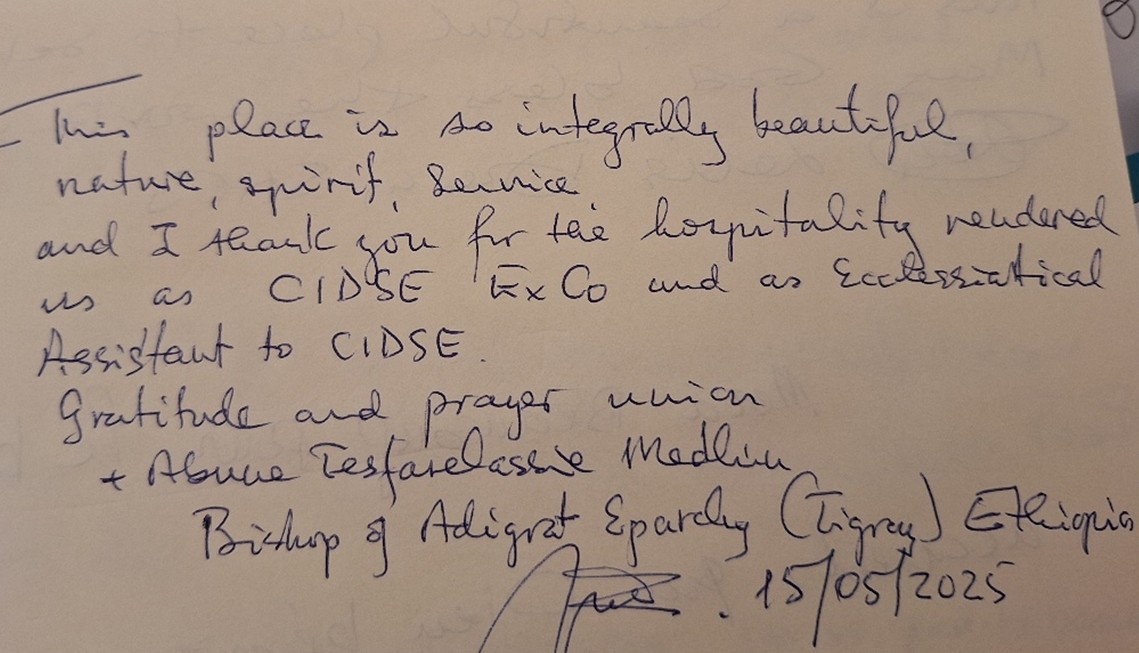 This place is so integrally beautiful,
nature, spirit, service
and I thank you for the hospitality rendered
us as CIDSE ExCo and as Ecclessiatical
Assistant to CIDSE.
Gratitude and prayer union
+ Abune Tesfaselassie Medhin
Bishop of Adigrat Eparchy (Tigray) Ethiopia
. 15/05/2025